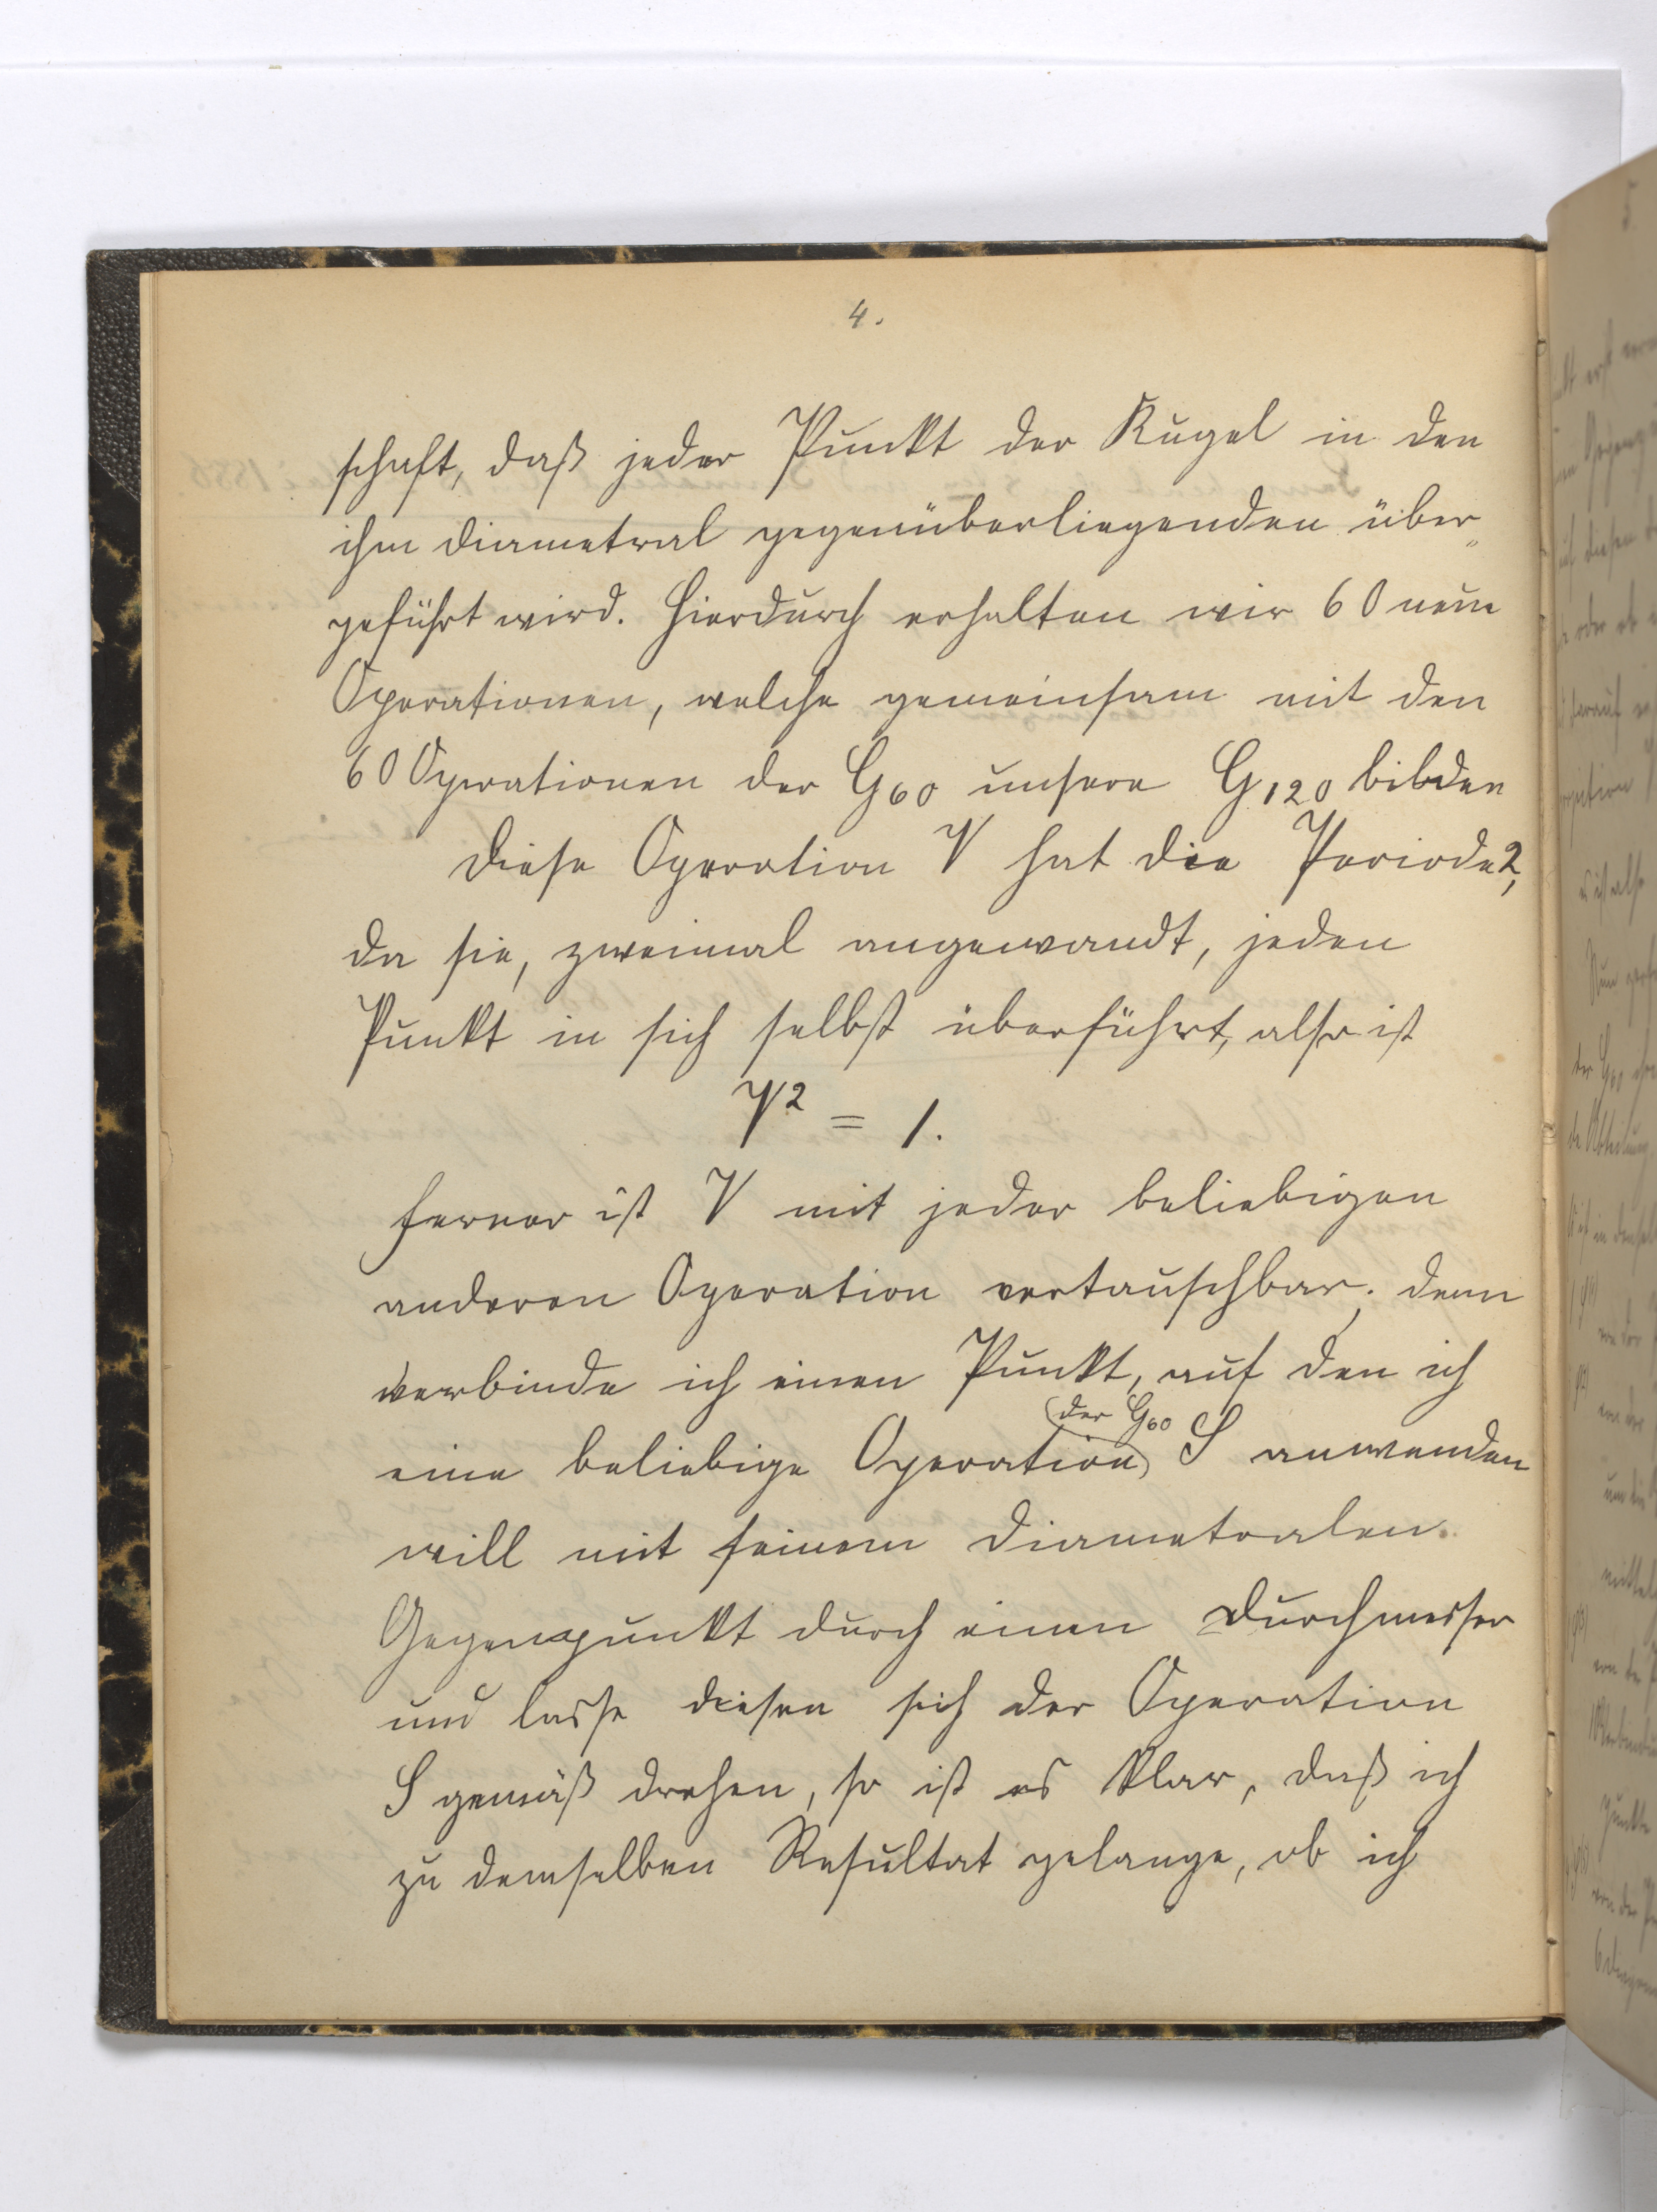 4.
schaft, daß jeder Punkt der Kugel in den
ihm diametral gegenüberliegenden über„
geführt wird. Hierdurch erhalten wir 60 neue
Operationen, welche gemeinsam mit den
60 Operationen der G₆₀ unsere G₁₂₀ bilden
Diese Operation V hat die Periode 2,
da sie, zweimal angewandt, jeden
Punkt in sich selbst überführt, also ist
V² = 1.
Ferner ist V mit jeder beliebigen
anderen Operation vertauschbar; denn
verbinde ich einen Punkt, auf den ich
der G₆₀
eine beliebige Operation S anwenden
will mit seinem diametralen
Gegenpunkt durch einen Durchmesser
und lasse diesen sich der Operation
S gemäß drehen, so ist es klar, daß ich
zu demselben Resultat gelange, ob ich